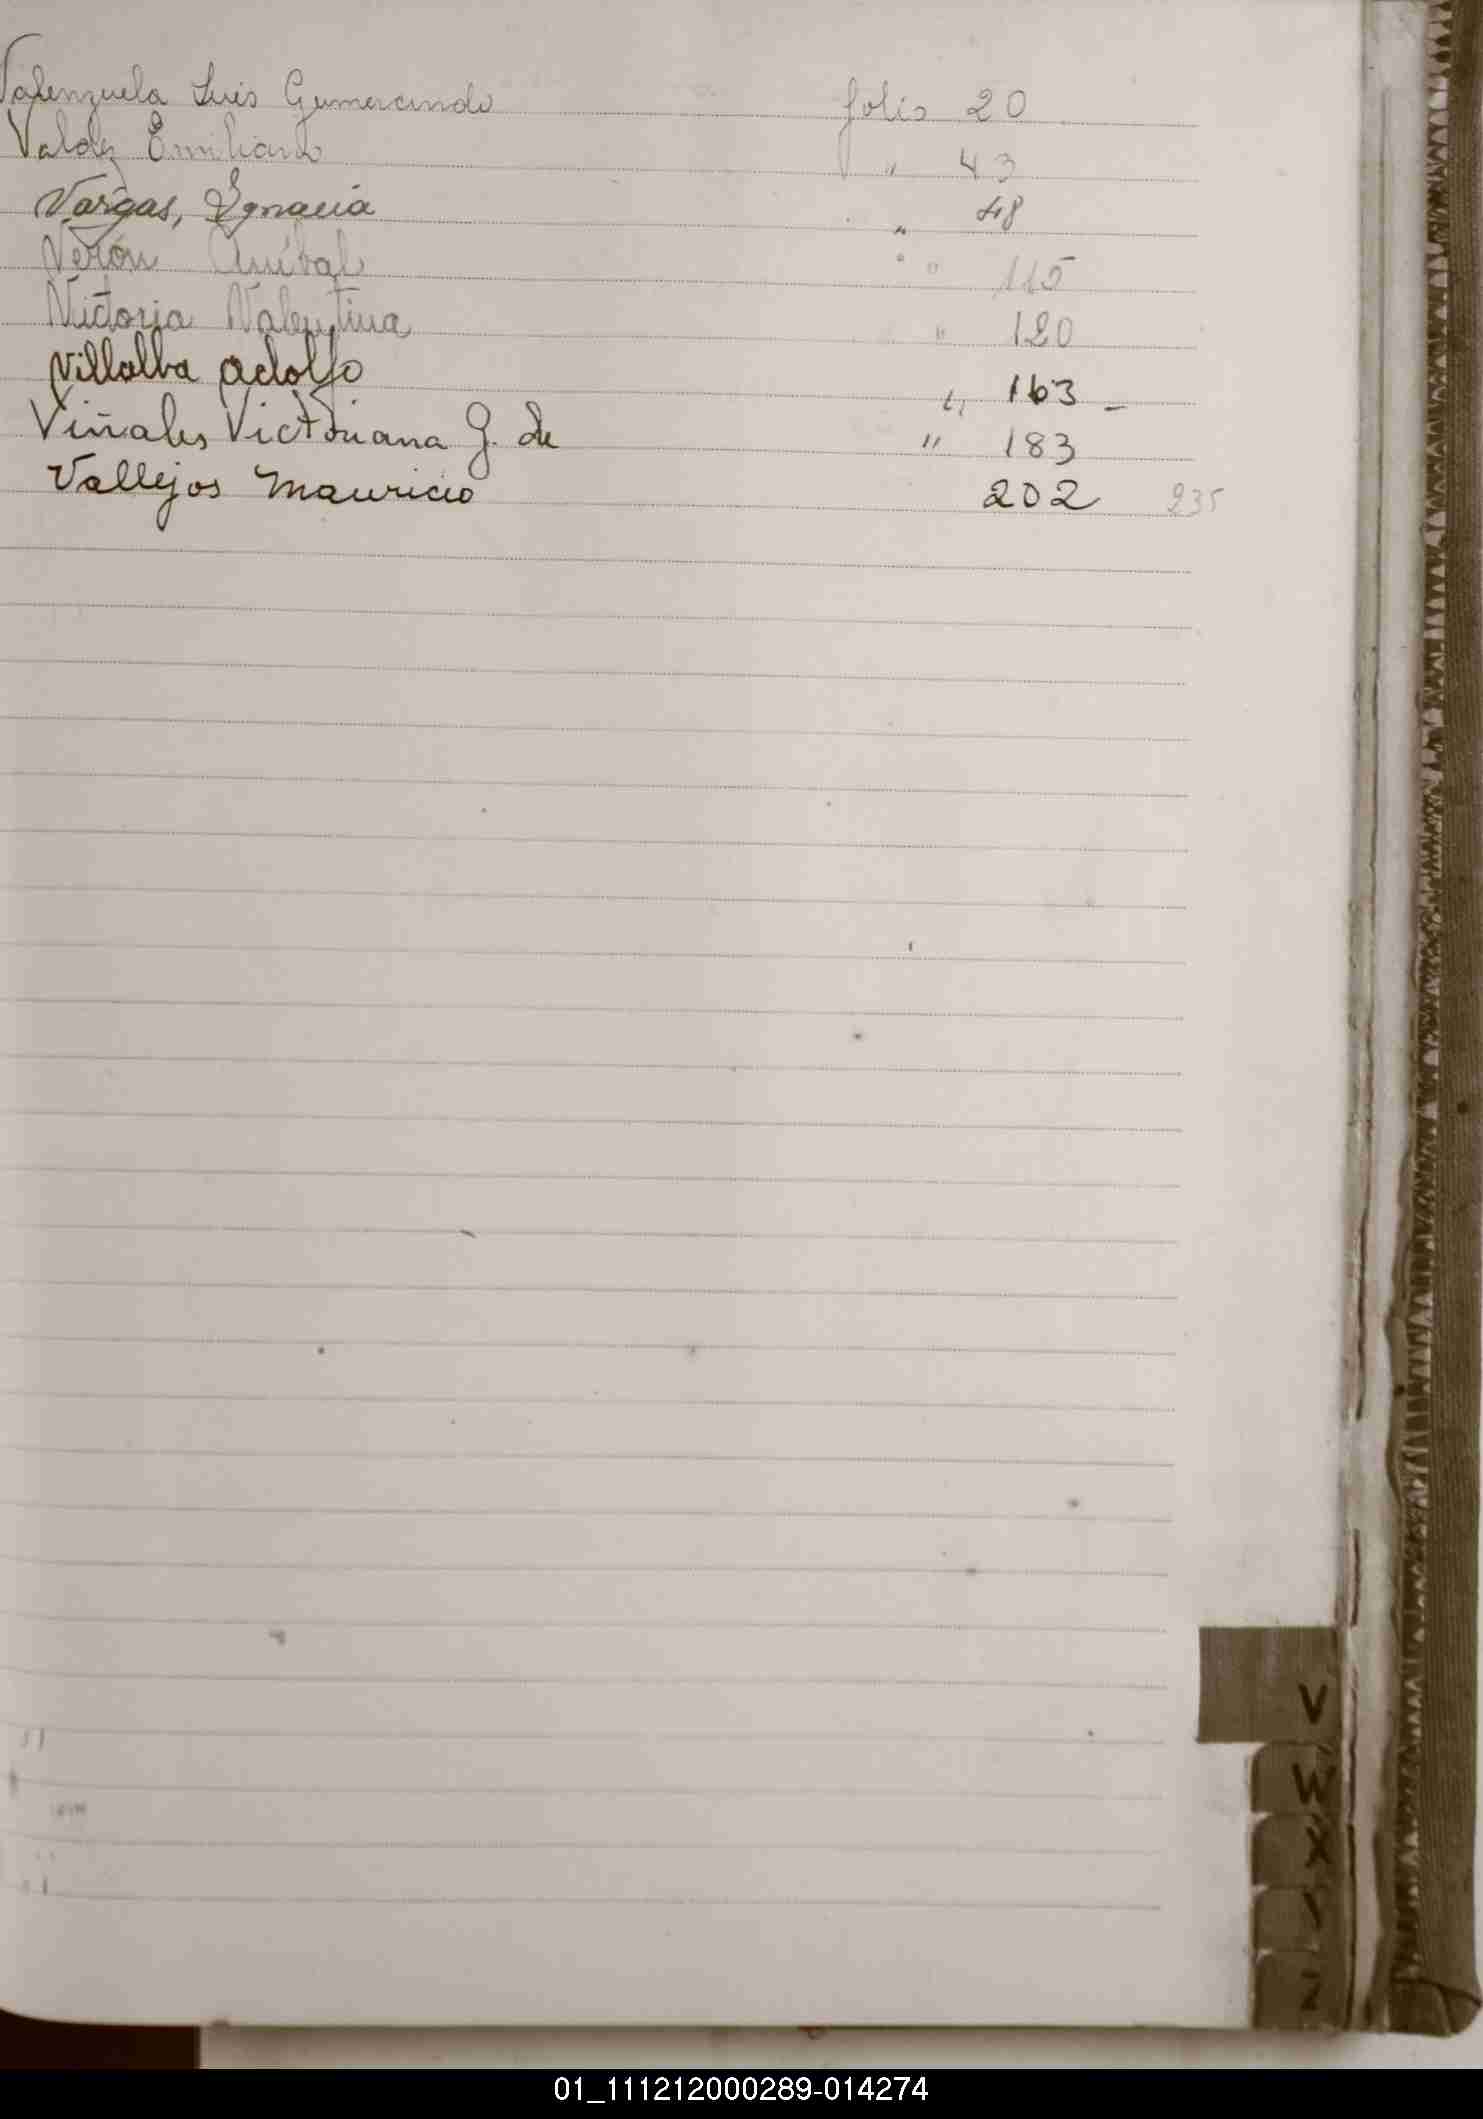 Valenzuela Luis Gumercindo folio 20
Valdez Emiliano " 43
Vargas, Ignacia " 48
Verón Aníbal " " 115
Victoria Valentina " 120
Villalba Adolfo " 163 -
Viñales Victoriana G. de " 183
Vallejos Mauricio 202 235
V
W
X
Y
Z
01_111212000289-014274